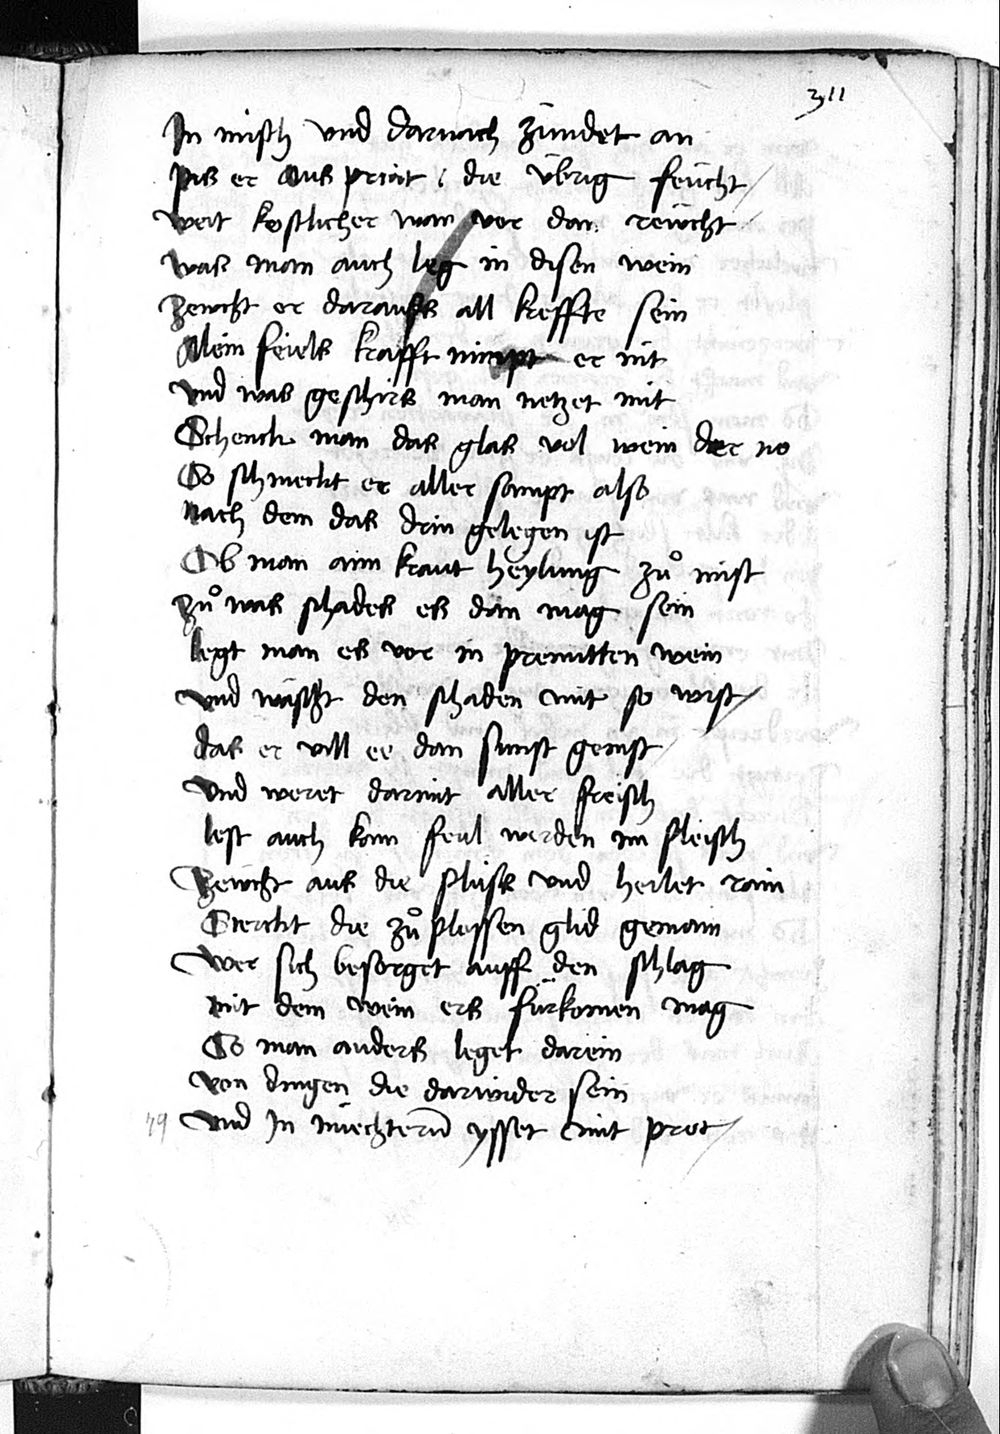 311
In misch vnd darnach zündet an
piß er auß print die vbrig feücht
weit kostlicher wan vor dan reücht
waß man auch leg in disen wein
zeücht er darauß all kreffte sein
Alein feielß krafft nimpt er nit
vnd waß geschirß man netzet mit
Schenck man daß glaß vol wein der no
So schmeckt er aller sampt also
nach dem daß drin gelegen ist
Ob man aim kraut heylung zů mist
zů waß schadeß eß dan mag sein
legt man eß vor in prenntten wein
vnd wäscht den schaden mit so wist
daß er vill ee dan sunst genist
vnd weret darmit aller freisch
lest auch kain feul werden im fleisch
zeücht auß die flüsß vnd heilet rain
Sterckt die zů plossen glid gemain
wer sich besorget auff den schlag
mit dem wein erß fürkomen mag
So man anderß leget darein
von dingen die darwider sein
vnd In nüechternd ysset mit prot